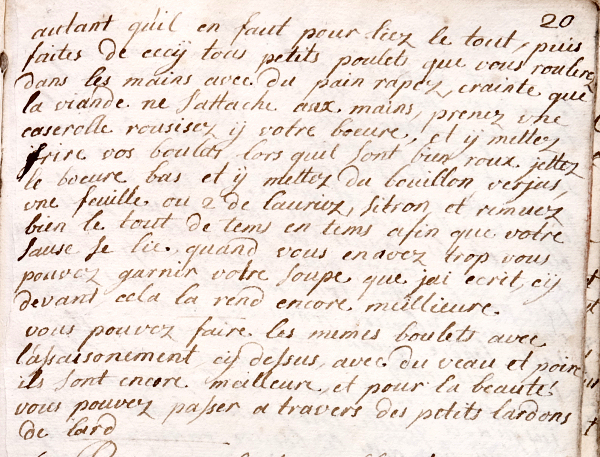 20
autant qu'il en faut pour liez le tout, puis
faites de cecÿ tous petits poulets que vous roulerez
dans les mains avec du pain rapez, crainte que
la viande ne s'attache aux mains, prenez vne
caserolle rousisez ij votre boeure, et ij mettez
frire vos boulets, lors quil sont bien roux jettez
le boeure bas et ij mettez du bouillon verjus,
vne feuille ou 2 de lauriez, sitron, et remuez
bien le tout de tems en tems afin que votre
sause se lie. quand vous en avez trop vous
pouvez garnir votre soupe que jai ecrit, cij
devant cela la rend encore meillieure.
vous pouvez faire les memes boulets avec
l'assaisonement cij dessus, avec du veau et poire
ils sont encore meilleure, et pour la beauté
vous pouvez passer a travers des petits lardons
de lard